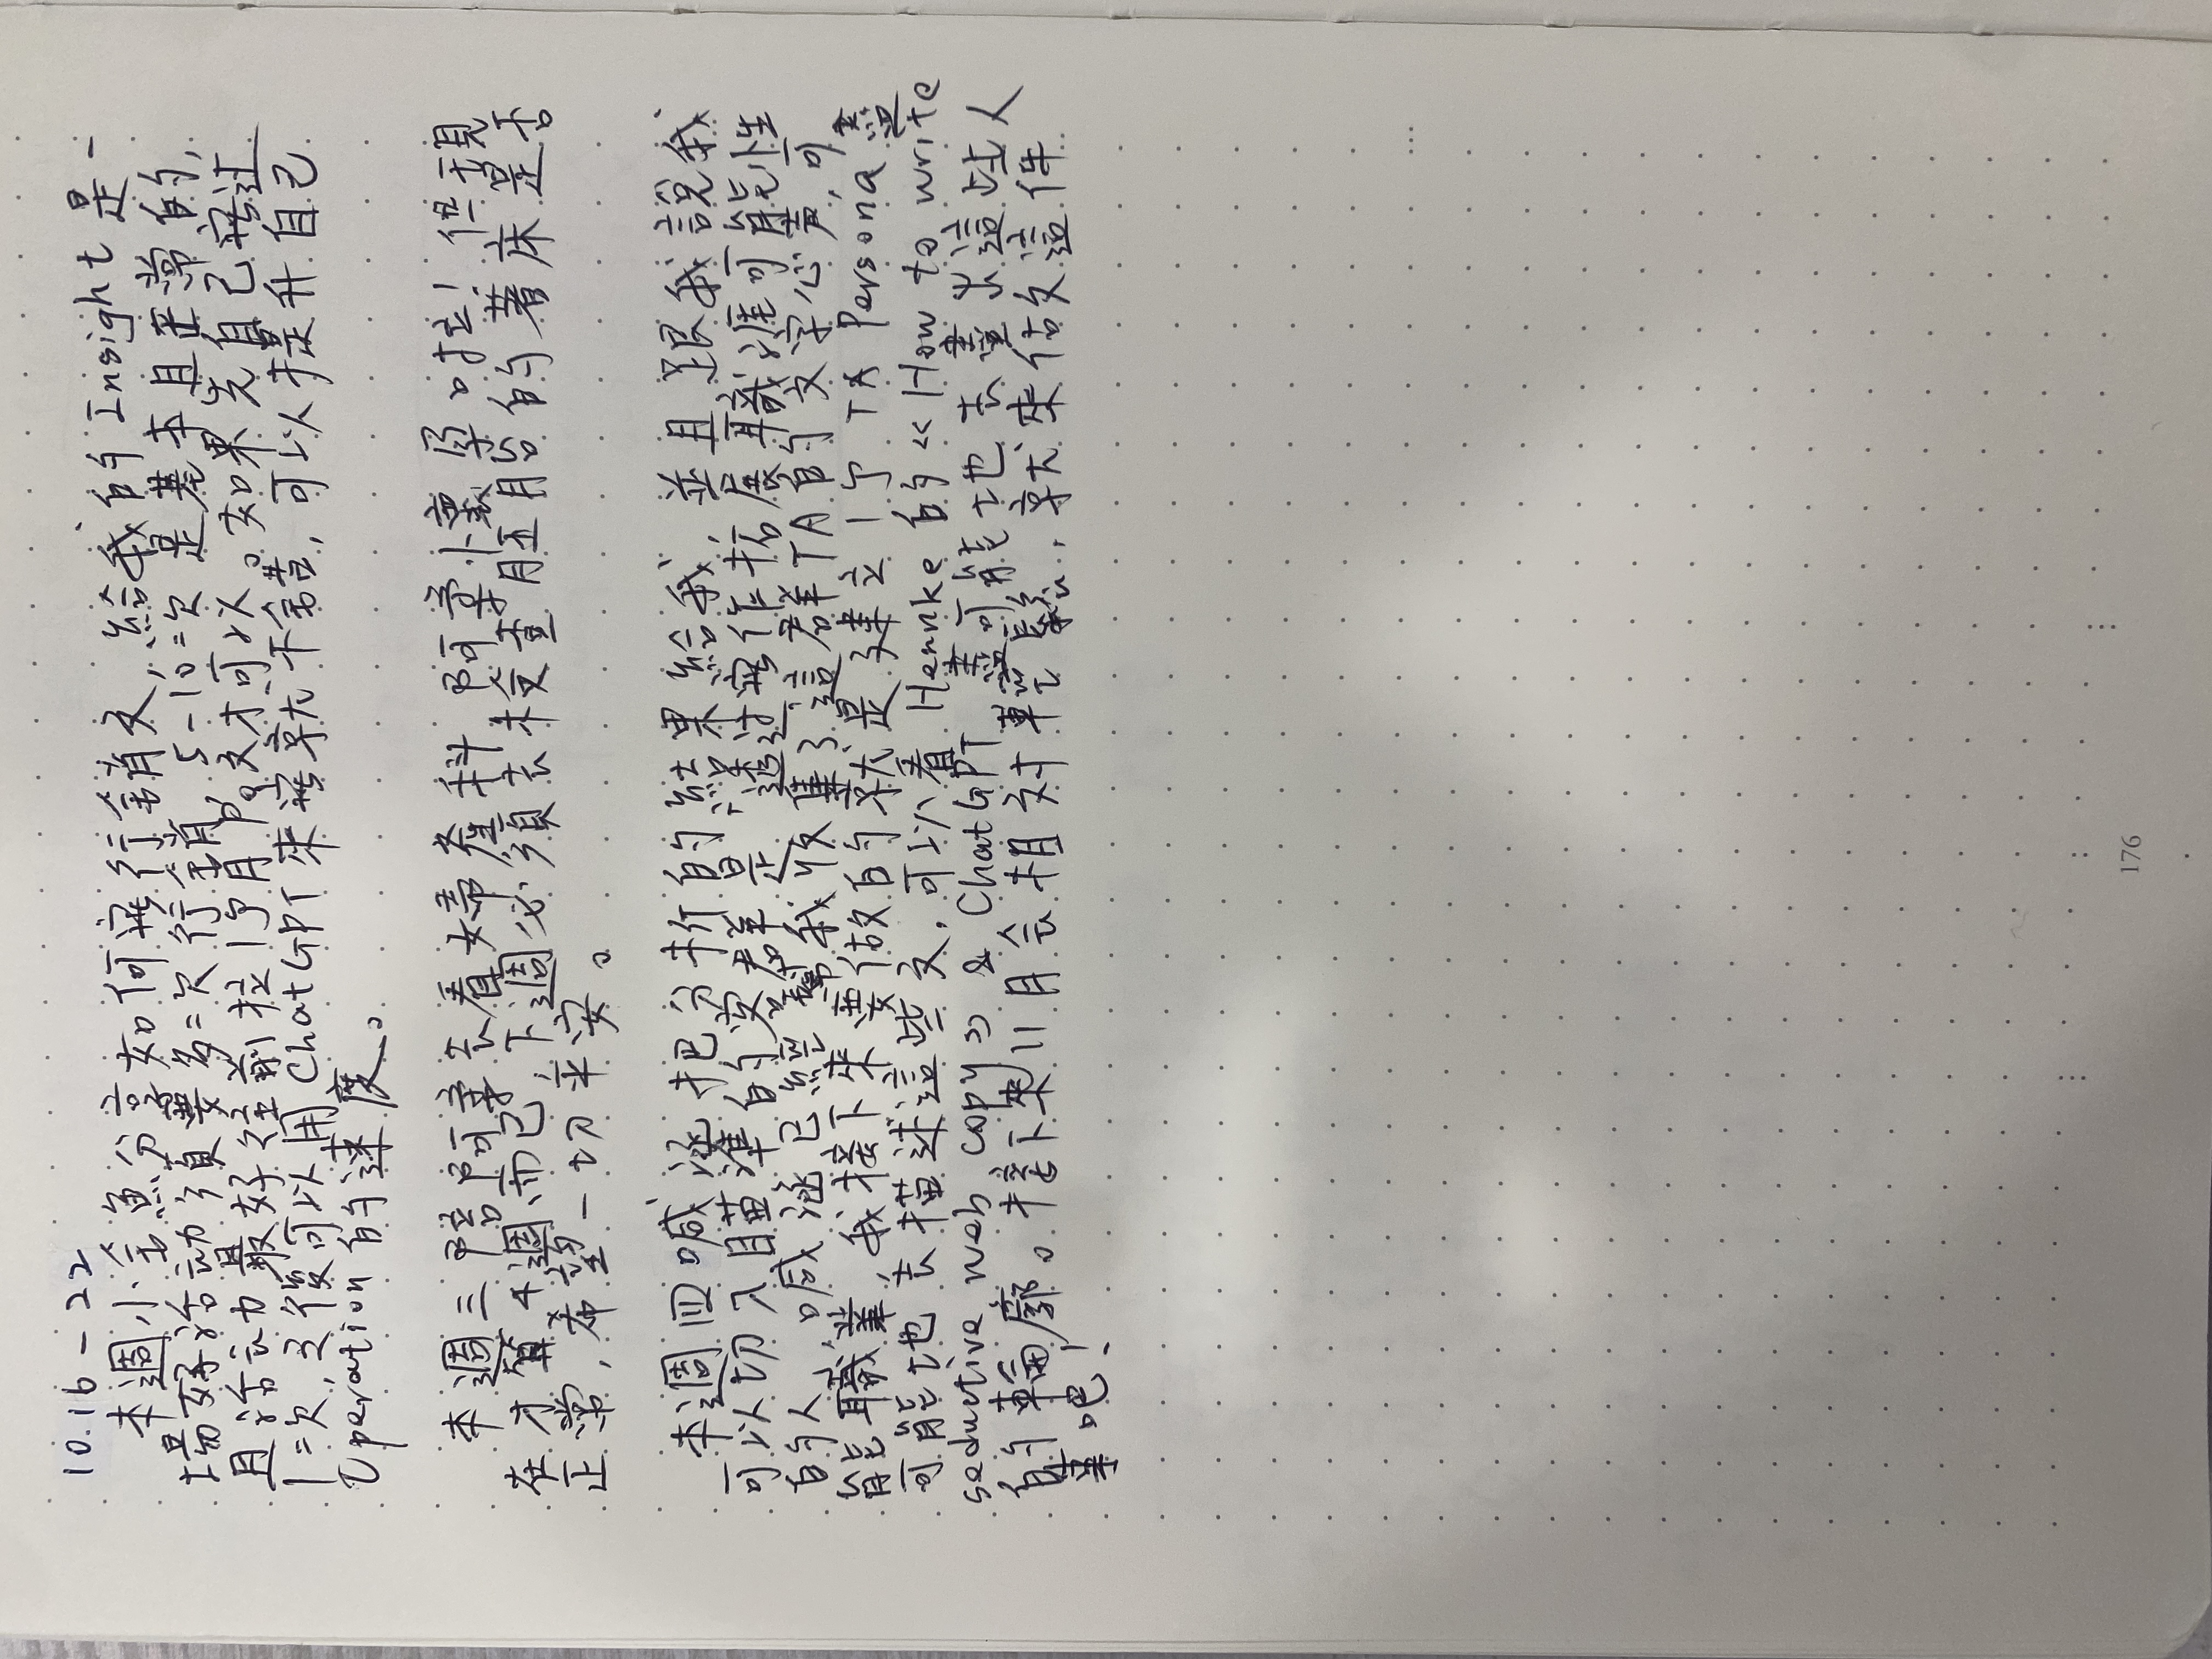 10.16 - 22
本週小金魚分享如何寫行銷文, 給我的 Insight 是一
場好活动須要多次行銷, 5-10次是基本且正常的,
且活动最好往前拉1个月Po文才可以。如果先自己寫过
1次, 之後可以用 ChatGPT 來寫就不錯, 可以提升自己
Operation 的速度。
本週三陪阿享去看婦產科, 阿享懷孕啦! 但現
在才算4週而已, 下週必須去檢查胚胎的著床是否
正常, 希望一切平安。
本週四喊涵把分析的結果給我, 並且跟我說我
可以切入瞄準的客群是「透过寫作拓展職涯可能性
的人」, 喊涵已經幫我收集了這群TA的文字心声, 可
能職業, 我接下來要做的就是建立1个 TA Persona 盡
可能地去描述這些文, 可以看 Hennke 的 《How to write
seductive web copy》 & ChatGPT, 盡可能地去畫出這些人
的輪廓。接下來11月会相对輕鬆, 就來做這件
事吧!
176